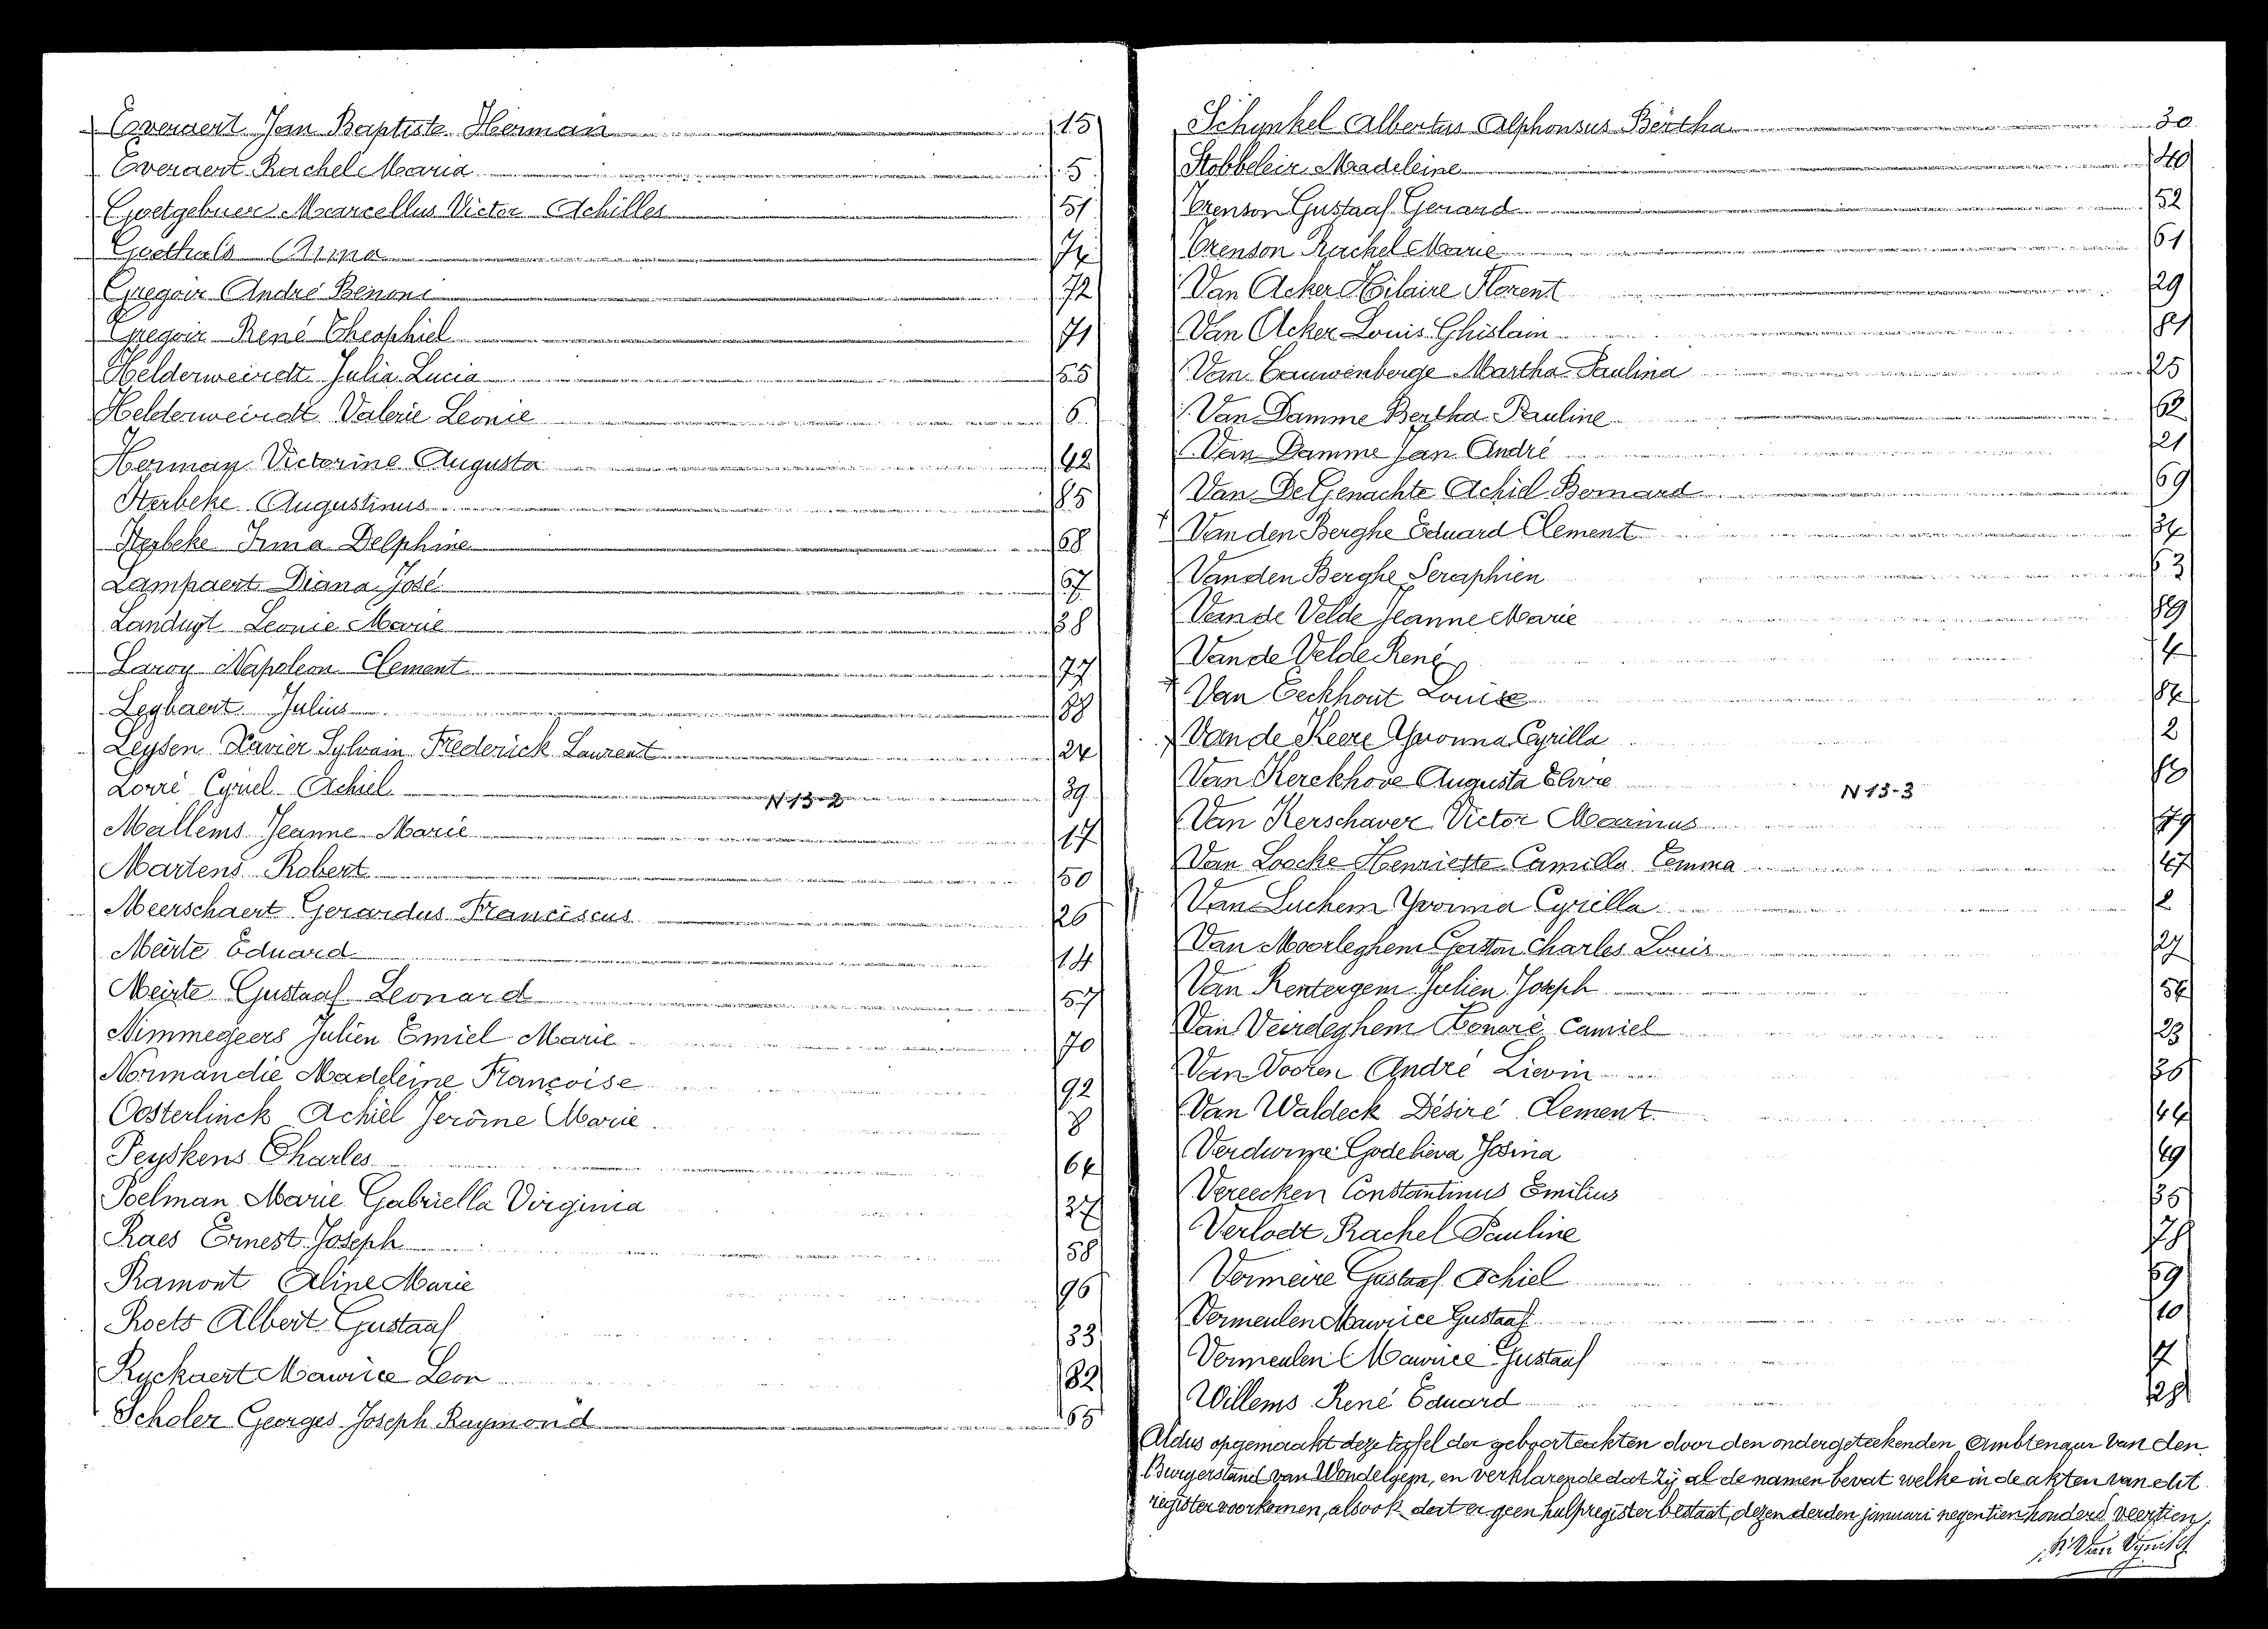 Everaert Jan Baptiste Herman 15
Everaert Rachel Maria 5
Goetgebuer Marcellus Victor Achilles 51
Goethals Anna 74
Gregoir André Benoni 72
Gregoir René Theophiel 71
Helderweirdt Julia Lucia 55
Helderweirdt Valerie Leonie 6
Herman Victorine Augusta 42
Herbeke Augustinus 85
Herbeke Irma Delphine 68
Lampaert Diana José 67
Landuyt Leonie Marie 38
Laroy Napoleon Clement 77
Leghaert Julius 88
Leysen Xavier Sylvain Frederick Laurent 24
Lorré Cyriel Achiel 39
N 13-2
Mallems Jeanne Marie 17
Martens Robert 50
Meerschaert Gerardus Franciscus 26
Meirte Eduard 14
Meirte Gustaaf Leonard 57
Nimmegeers Julien Emiel Marie 70
Normandie Madeleine Françoise 92
Oosterlinck Achiel Jerôme Marie 8
Peyskens Charles 64
Poelman Marie Gabriella Virginia 37
Raes Ernest Joseph 58
Ramont Aline Marie 96
Roets Albert Gustaaf 33
Ryckaert Maurice Leon 82
Scholer Georges Joseph Raymond 65
Schynkel Albertus Alphonsus Bertha 30
Stobbeleir Madeleine 40
Trenson Gustaaf Gerard 52
Trenson Rachel Marie 61
Van Acker Hilaire Florent 29
Van Acker Louis Ghislain 81
Van Cauwenberge Martha Paulina 25
Van Damme Bertha Pauline 62
Van Damme Jan André 21
Van De Genachte Achiel Bernard 69
Van den Berghe Eduard Clement 34
Van den Berghe Seraphien 63
Van de Velde Jeanne Marie 89
Van de Velde René 4
Van Eeckhout Louise 84
Van de Keere Yvonna Cyrilla 2
Van Kerckhove Augusta Elvire
N 13-3
Van Kerschaver Victor Marinus 79
Van Loocke Henriette Camilla Emma 47
Van Luchem Yvonna Cyrilla 2
Van Moorleghem Gaston Charles Louis 27
Van Rentergem Julien Joseph 54
Van Veirdeghem Honoré Camiel 23
Van Vooren André Lievin 36
Van Waldeck Désiré Clement 44
Verdurme Godelieva Josina 49
Vereecken Constantinus Emilius 35
Verlodt Rachel Pauline 78
Vermeire Gustaaf Achiel 59
Vermeulen Maurice Gustaaf 10
Vermeulen Maurice Gustaaf 7
Willems René Eduard 28
Aldus opgemaakt deze tafel der geboorteakten door den ondergeteekenden Ambtenaar van den
Burgerstand van Wondelgem, en verklarende dat zij al de namen bevat welke in de akten van dit
register voorkomen, alsook dat er geen hulpregister bestaat, dezen derden januari negentien honderd veertien.